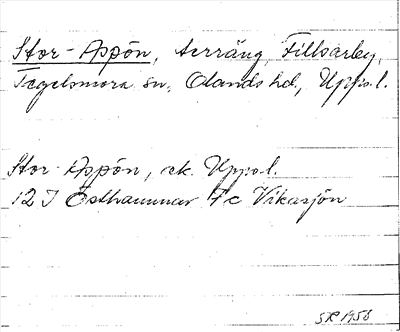 Stor-Appön, terräng, Fillsarby,
Tegelsmora sn, Olands hd, Upps.l.
Stor-Appön, ek. Upps.l.
12 I Östhammar Fc Vikasjön
SR 1958